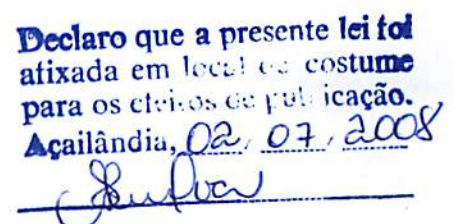 Declaro que a presente lei foi
afixada em local de costume
para os efeitos de publicação.
Açailândia, 02, 07, 2008